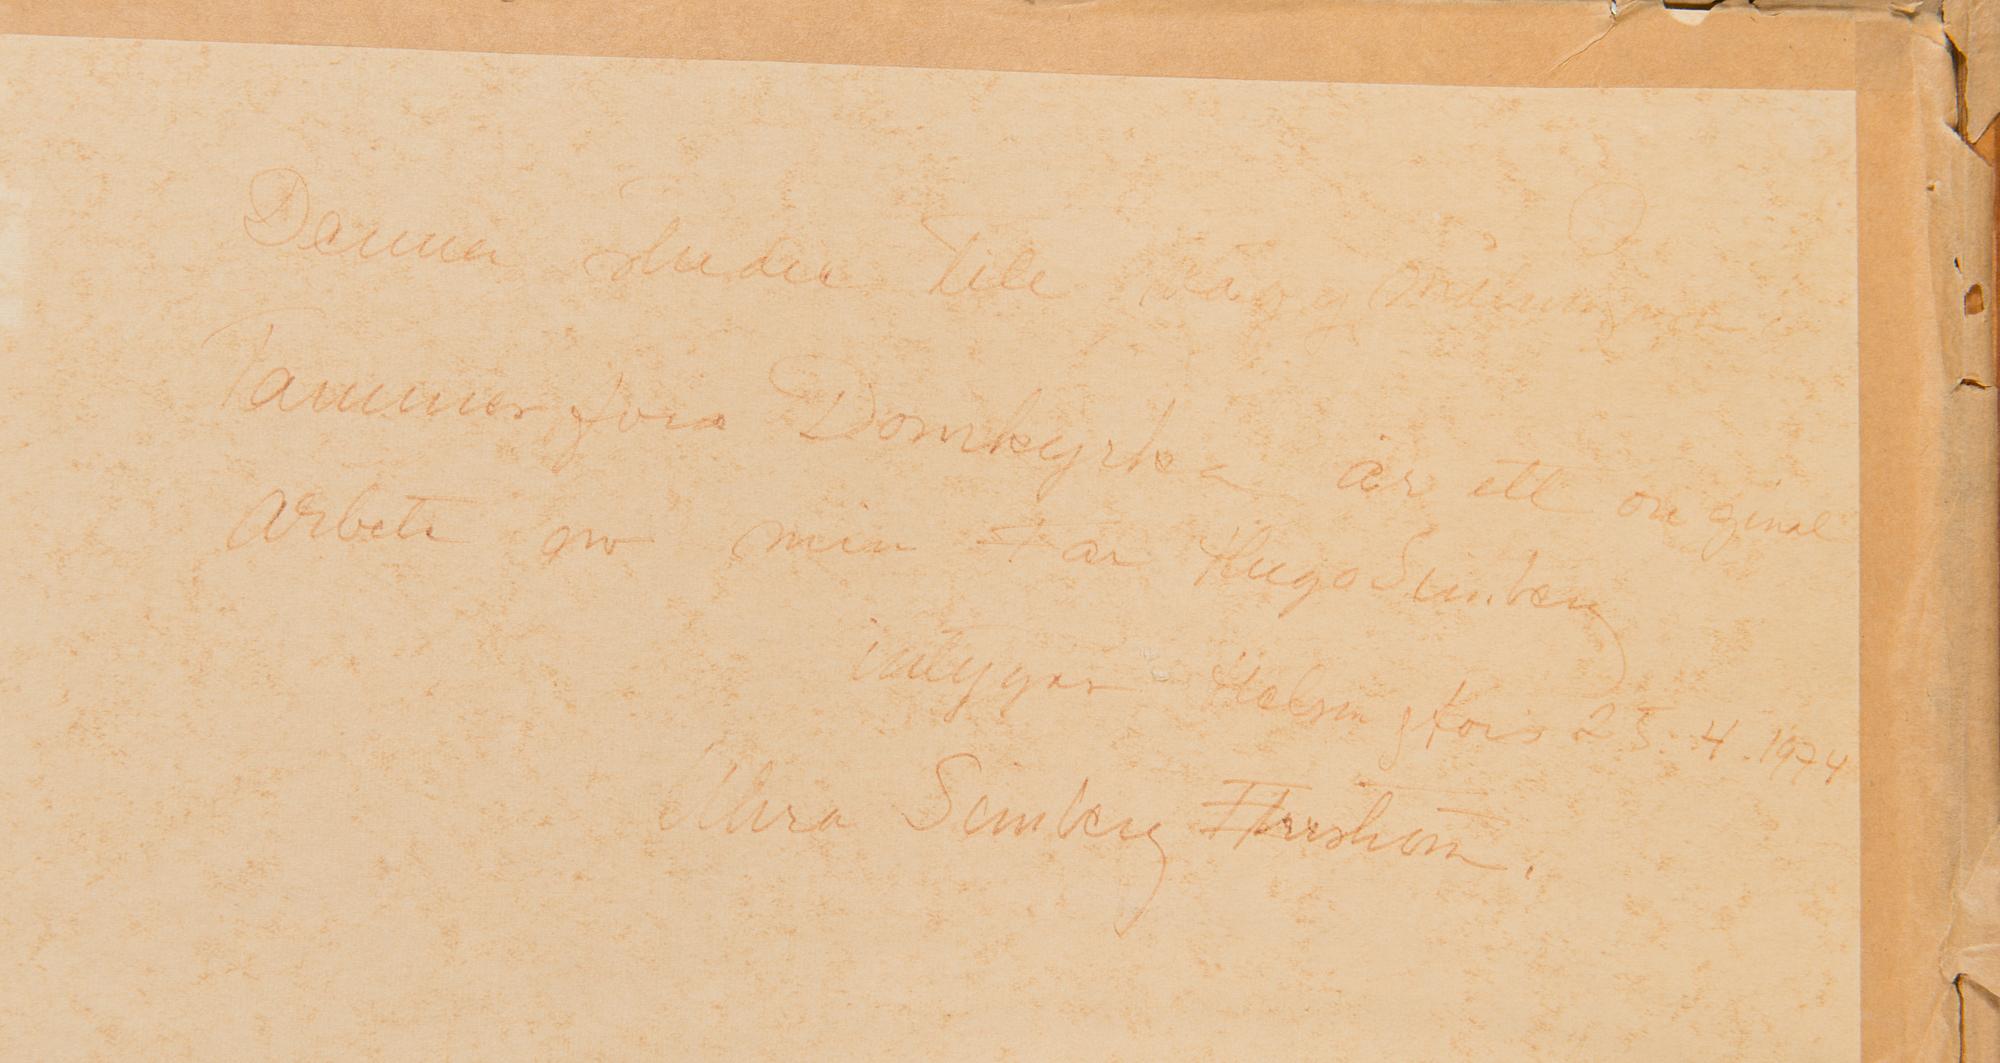 Denna studie till väggmålningen i
Tammerfors Domkyrka är ett original
arbete av min Far Hugo Simberg
intygar Helsingfors 25.4.1974
Simberg